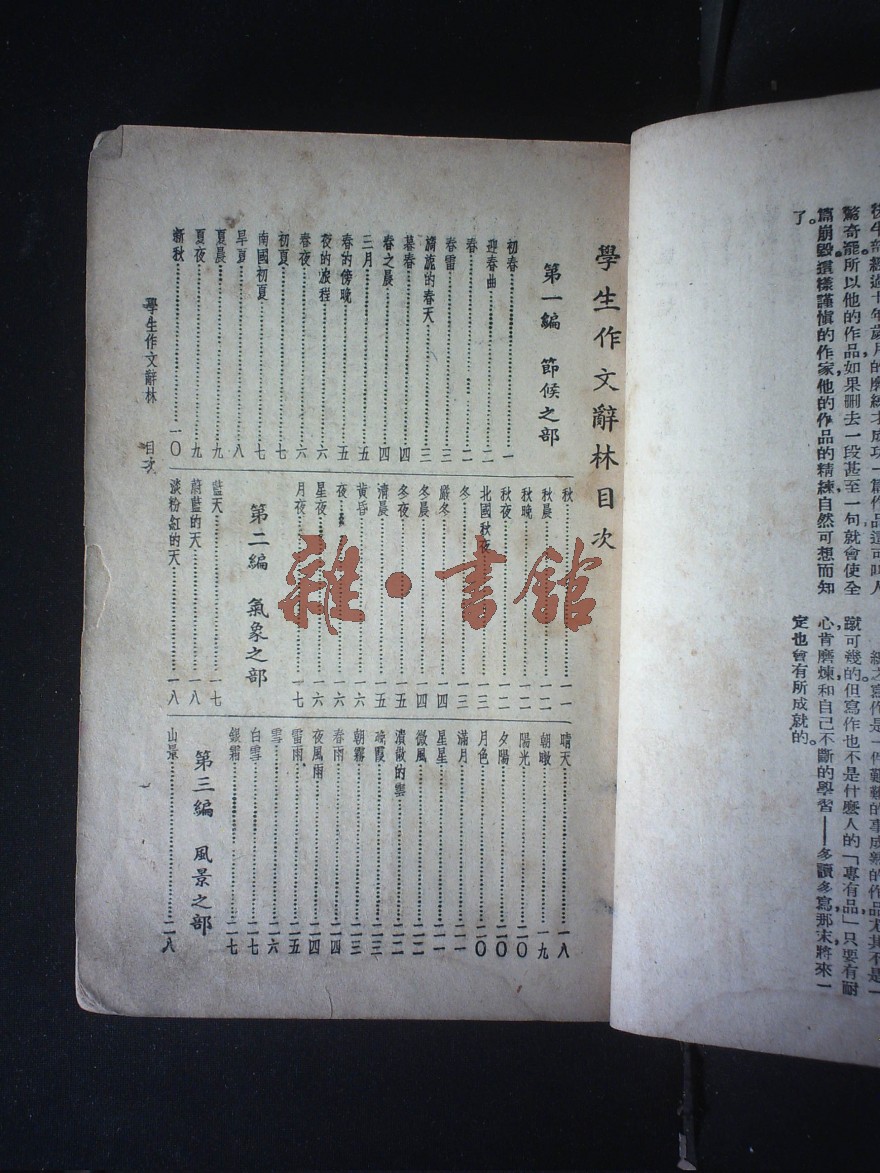 驚奇罷所以他的作品如果刪去一段甚至一句就會使全
篇崩毀這樣謹慎的作家他的作品的精練自然可想而知
了。
蹴可幾的。但寫作也不是什麽人的「專有品」只要有耐
心肯磨煉和自己不斷的學習——多讀多寫那末將來一
定也會有所成就的。
學生作文辭林目次
第一編 節候之部
初春 一
迎春曲 二
春 二
春雷 三
旖旎的春天 三
暮春 四
春之晨 四
三月 五
春的傍晚 五
夜的波程 六
春夜 六
初夏 七
南國初夏 七
旱夏 八
夏晨 九
夏夜 九
新秋 一〇
秋 一一
秋晨 一二
秋晚 一二
秋夜 一二
北國秋夜 一三
冬 一三
嚴冬 一四
冬晨 一四
冬夜 一五
清晨 一五
黄昏 一六
夜 一六
星夜 一六
月夜 一七
第二編 氣象之部
藍天 一七
蔚藍的天 一八
淡粉紅的天 一八
晴天 一八
朝暾 一九
陽光 二〇
夕陽 二〇
月色 二〇
滿月 二一
星星 二一
微風 二二
潰散的雲 二二
晚霞 二三
朝霧 二三
春雨 二四
夜風雨 二四
雷雨 二五
雪 二六
白雪 二七
銀霜 二七
第三編 風景之部
山景 二八
學生作文辭林 目次
雜·書館